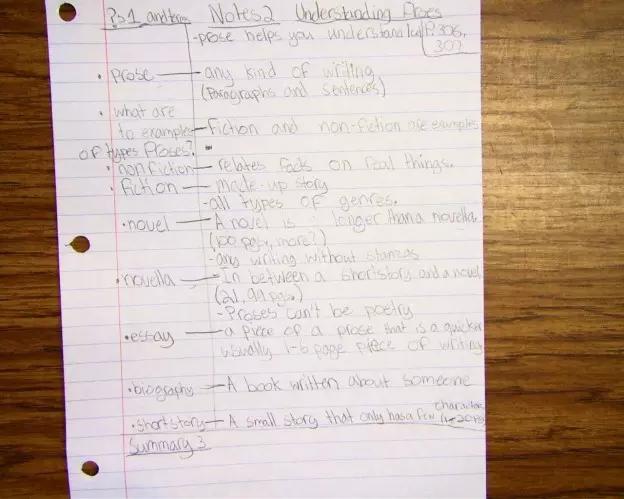 ?s 1 and terms Notes 2 Understanding Proses
-prose helps you understand P.306,
307
• prose — any kind of writing
(Paragraphs and sentences)
• what are
to examples — fiction and non-fiction are examples
of types Proses?
• nonfiction — relates facts on real things.
• fiction — made-up story
-all types of genres.
• novel — A novel is longer than a novella
(100 pgs, more?)
-any writing without stanzas
• novella — In between a short story and a novel
-Proses can't be poetry
• essay — a piece of a prose that is a quicker
usually 1-6 page piece of writing
• biography — A book written about someone
characters
• short story — A small story that only has a few
Summary 3